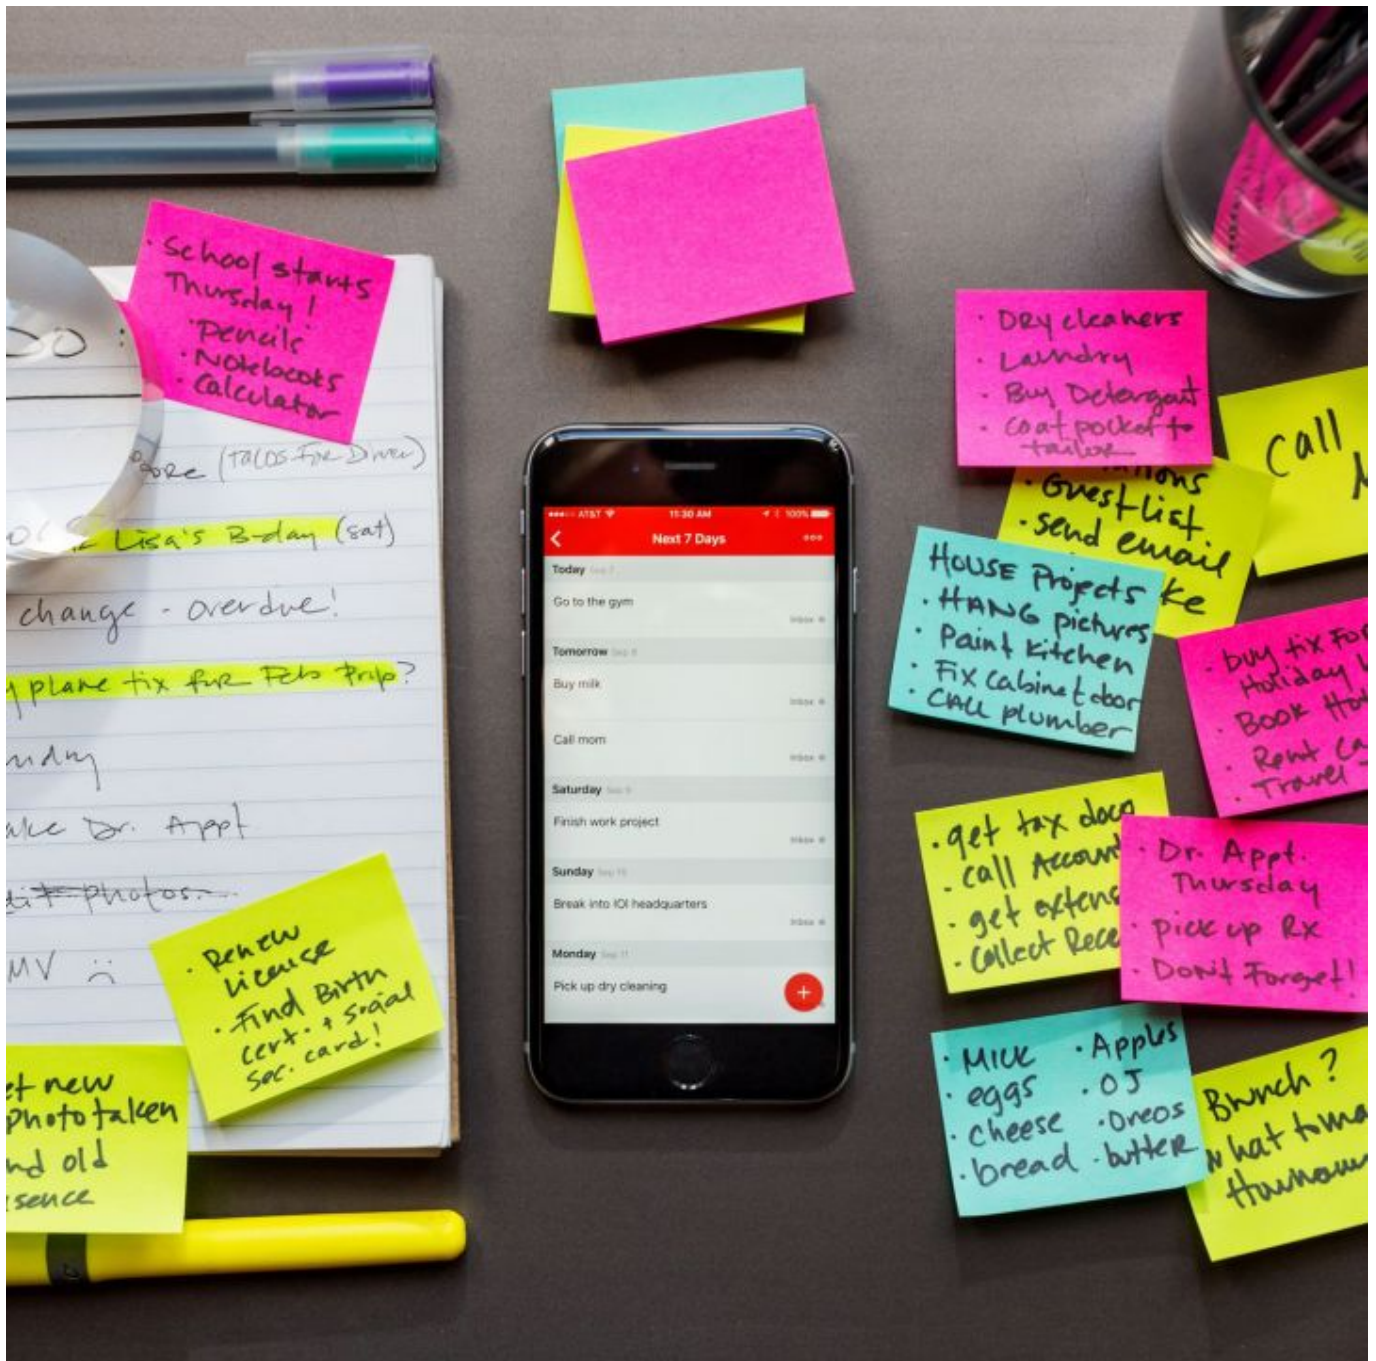 School starts
Thursday!
· Pencils
· Notebooks
· Calculator
DO :
(Tacos for Dinner)
Lisa's B-day (sat)
change - overdue!
plane tix for Feb Trip?
Dr. Appt
photos
MV ☹
· Renew
License
· Find Birth
cert. + social
sec. card!
new
photo taken
old
AT&T 11:30 AM 100%
Next 7 Days
Today Sep 7
Go to the gym
Inbox
Tomorrow Sep 8
Buy milk
Inbox
Call mom
Inbox
Saturday Sep 9
Finish work project
Inbox
Sunday Sep 10
Break into IOI headquarters
Inbox
Monday Sep 11
Pick up dry cleaning
+
· Dry cleaners
· Laundry
· Buy Detergent
· Coat pocket to
tailor
Call
· Guest list
· send email
HOUSE Projects
· HANG pictures
· Paint Kitchen
· Fix cabinet door
· CALL plumber
· buy tix For
Holiday
· Book
· Rent
· Travel
· get tax docs
· call
· get
· Collect
· Dr. Appt.
Thursday
· pick up Rx
· Don't Forget!
· Milk · Apples
· eggs · OJ
· cheese · Oreos
· bread · butter
Brunch?